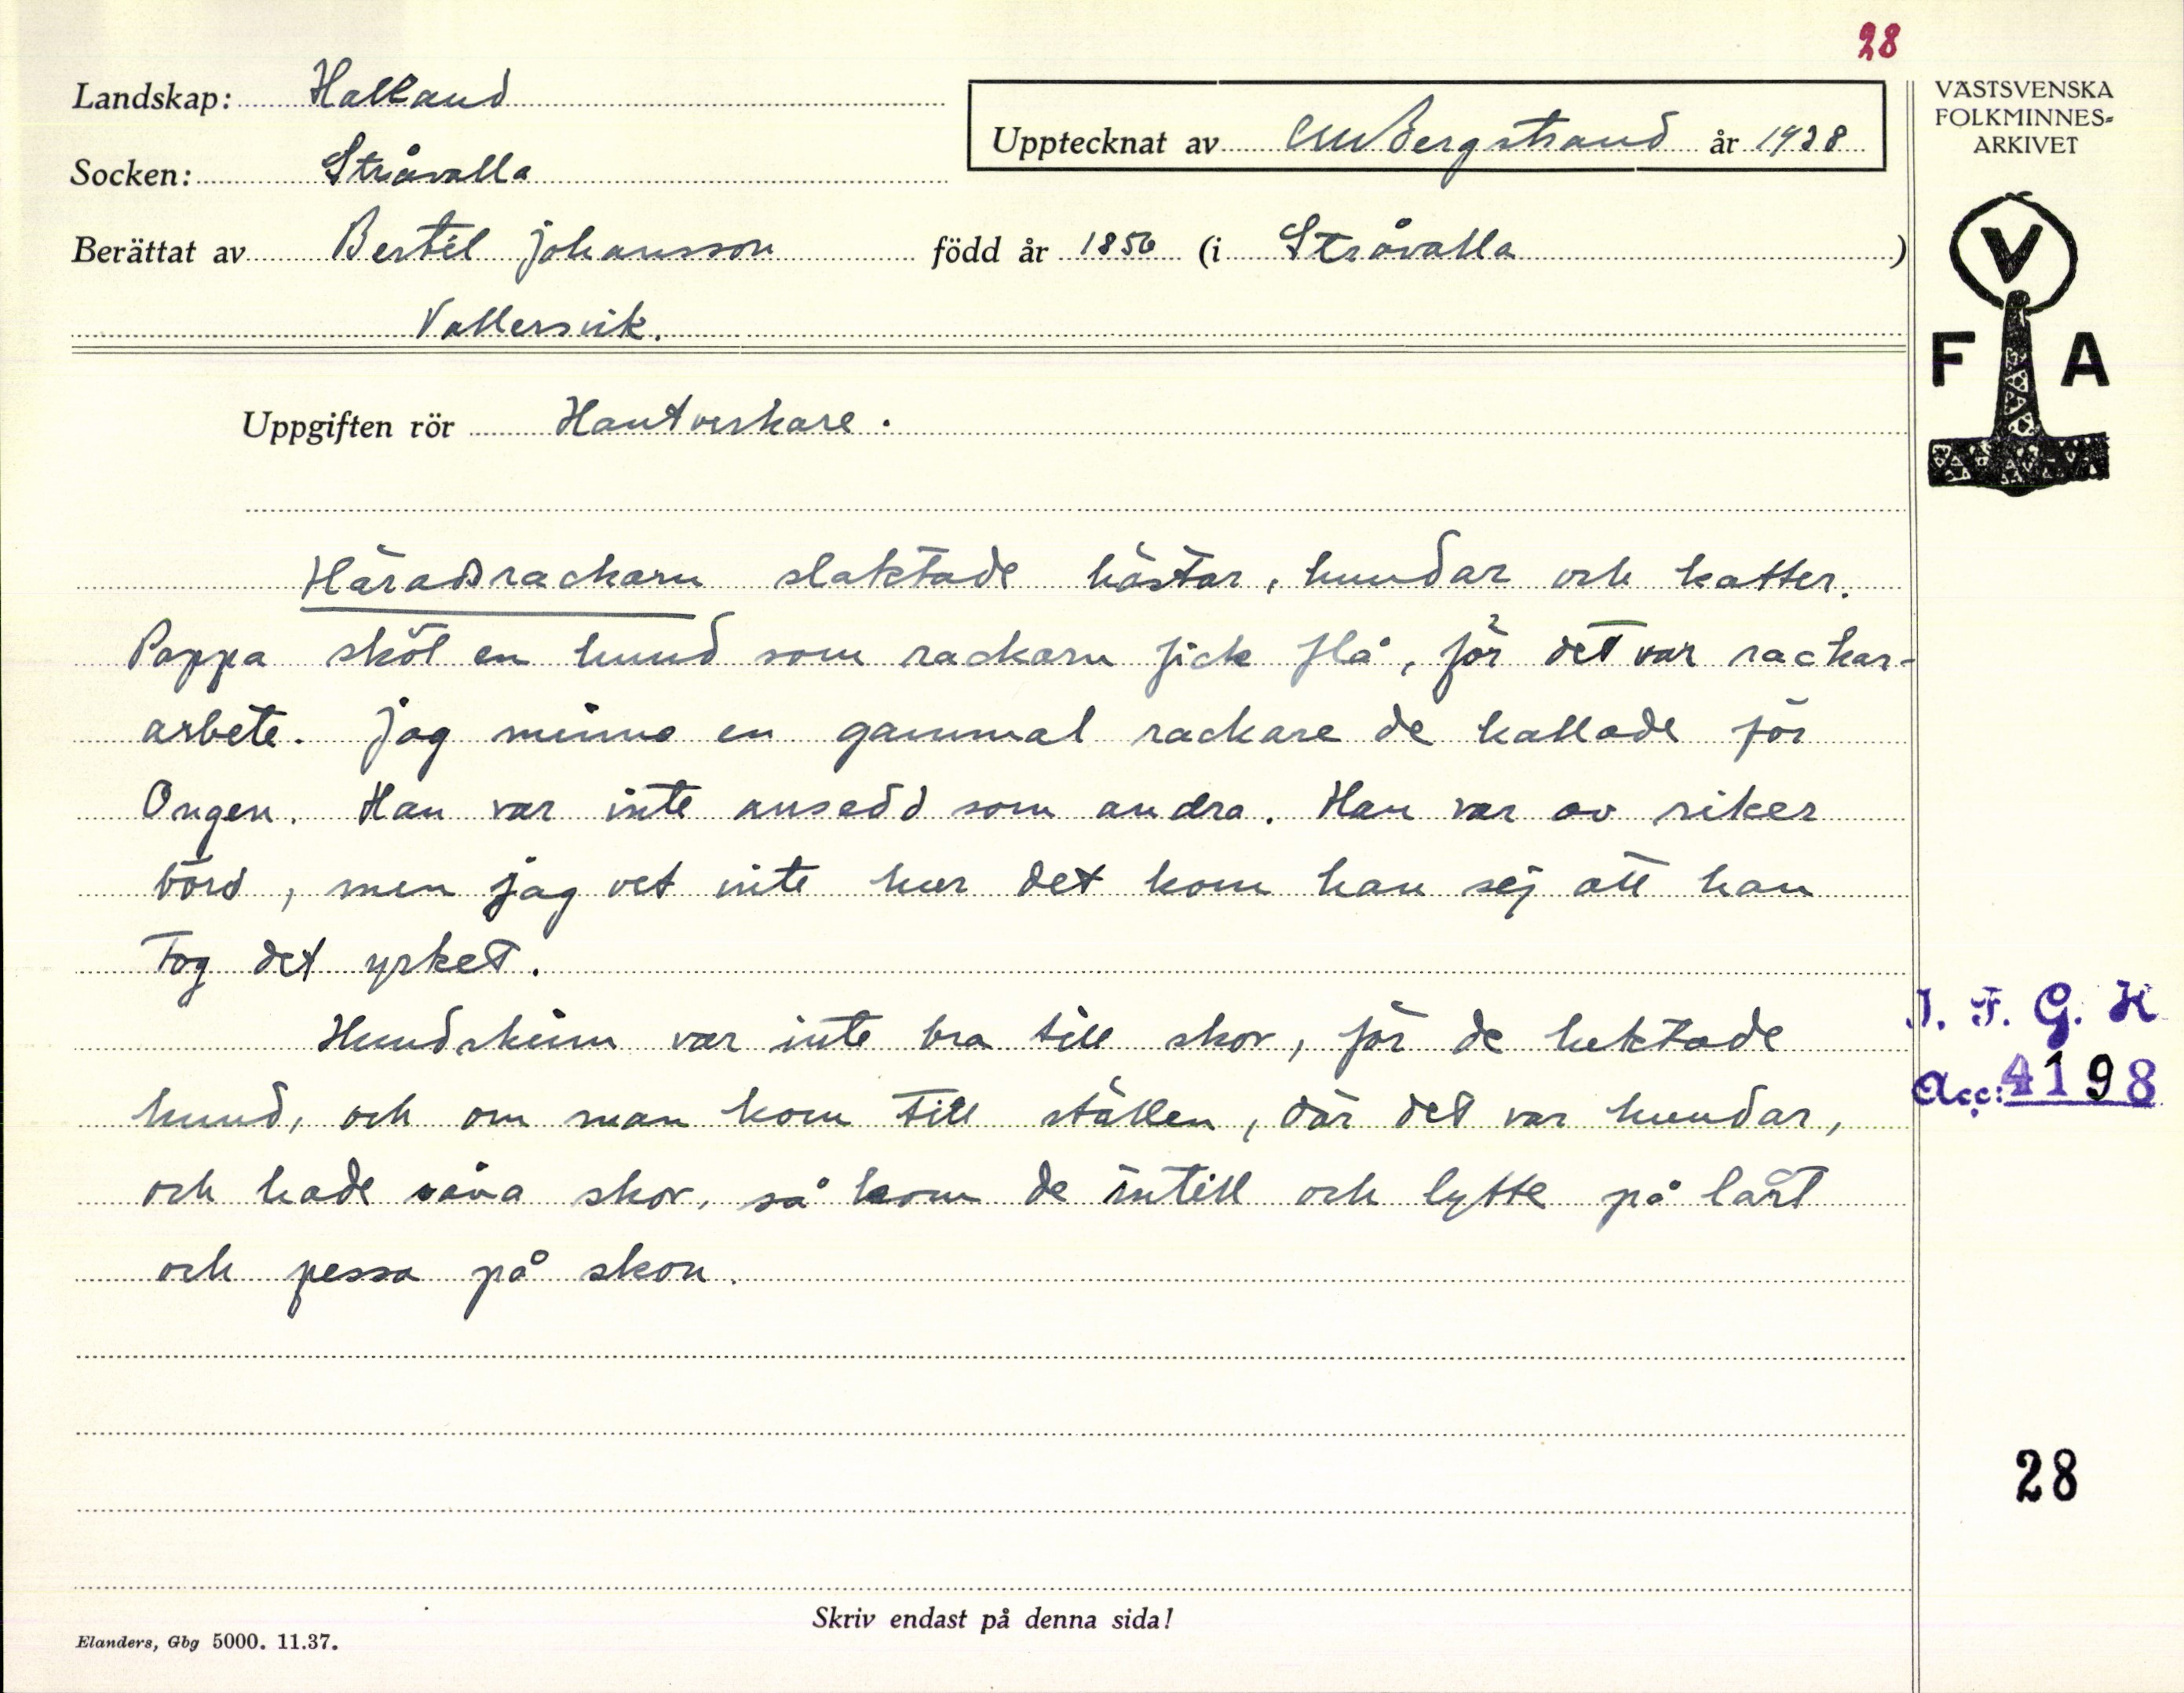 28
Landskap: Halland
Upptecknat av CMBergstrand år 1938
Socken: Stråvalla
Berättat av Bertil Johansson född år 1856 (i Stråvalla)
Vallersvik.
Uppgiften rör Hantverkare.
VÄSTSVENSKA
FOLKMINNES-
ARKIVET
V
F A
Häradsrackarn slaktade hästar, hundar och katter.
Pappa sköt en hund som rackarn fick flå, för det var rackar-
arbete. Jag minns en gammal rackare de kallade för
Ongen. Han var inte ansedd som andra. Han var av riker
börd, men jag vet inte hur det kom han sej att han
tog det yrket.
Hundskinn var inte bra till skor, för de luktade
hund, och om man kom till ställen, där det var hundar,
och hade såna skor, så kom de intill och lytte på lårt
och pessa på skon.
I. F. G. H
Acc: 4198
28
Skriv endast på denna sida!
Elanders, Gbg 5000. 11.37.